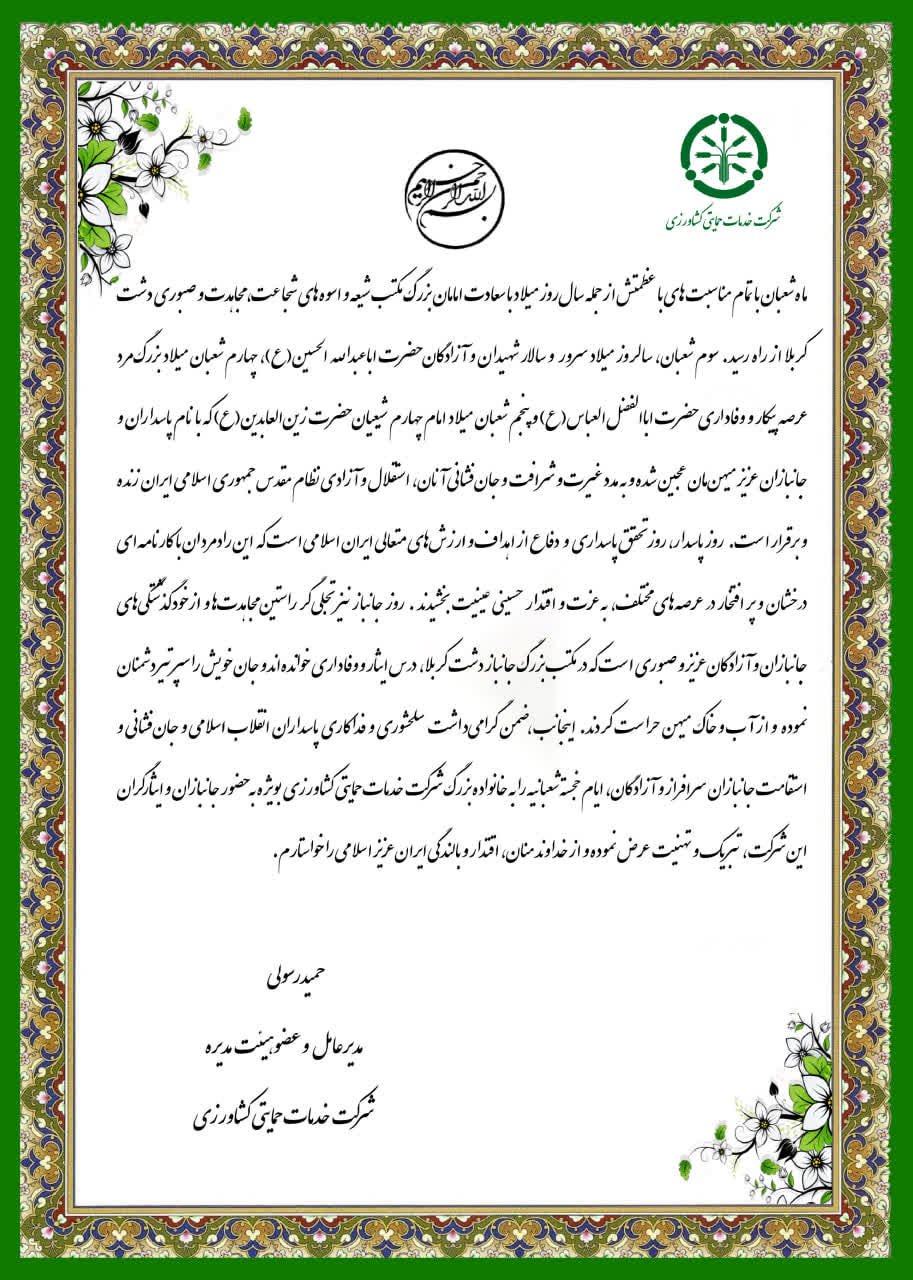 بسم الله الرحمن الرحیم
شرکت خدمات حمایتی کشاورزی
ماه شعبان با تمام مناسبت های با عظمتش از جمله سال روز میلاد با سعادت امامان بزرگ مکتب شیعه و اسوه های شجاعت، مجاهدت و صبوری دشت
کربلا از راه رسید. سوم شعبان، سالروز میلاد سرور و سالار شهیدان و آزادگان حضرت اباعبدالله الحسین(ع)، چهارم شعبان میلاد بزرگ مرد
عرصه پیکار و وفاداری حضرت اباالفضل العباس(ع) و پنجم شعبان میلاد امام چهارم شیعیان حضرت زین العابدین(ع) که با نام پاسداران و
جانبازان عزیز میهن مان عجین شده و به مدد غیرت و شرافت و جان فشانی آنان، استقلال و آزادی نظام مقدس جمهوری اسلامی ایران زنده
و برقرار است. روز پاسدار، روز تحقق پاسداری و دفاع از اهداف و ارزش های متعالی ایران اسلامی است که این رادمردان با کارنامه ای
درخشان و پر افتخار در عرصه های مختلف، به عزت و اقتدار حسینی عینیت بخشیدند. روز جانباز نیز تجلی گر راستین مجاهدت ها و از خودگذشتگی های
جانبازان و آزادگان عزیز و صبوری است که در مکتب بزرگ جانباز دشت کربلا، درس ایثار و وفاداری خوانده اند و جان خویش را سپر تیر دشمنان
نموده و از آب و خاک میهن حراست کردند. اینجانب، ضمن گرامی داشت سلحشوری و فداکاری پاسداران انقلاب اسلامی و جان فشانی و
استقامت جانبازان سرافراز و آزادگان، ایام خجسته شعبانیه را به خانواده بزرگ شرکت خدمات حمایتی کشاورزی بویژه به حضور جانبازان و ایثارگران
این شرکت، تبریک و تهنیت عرض نموده و از خداوند منان، اقتدار و بالندگی ایران عزیز اسلامی را خواستارم.
حمید رسولی
مدیرعامل و عضو هیئت مدیره
شرکت خدمات حمایتی کشاورزی